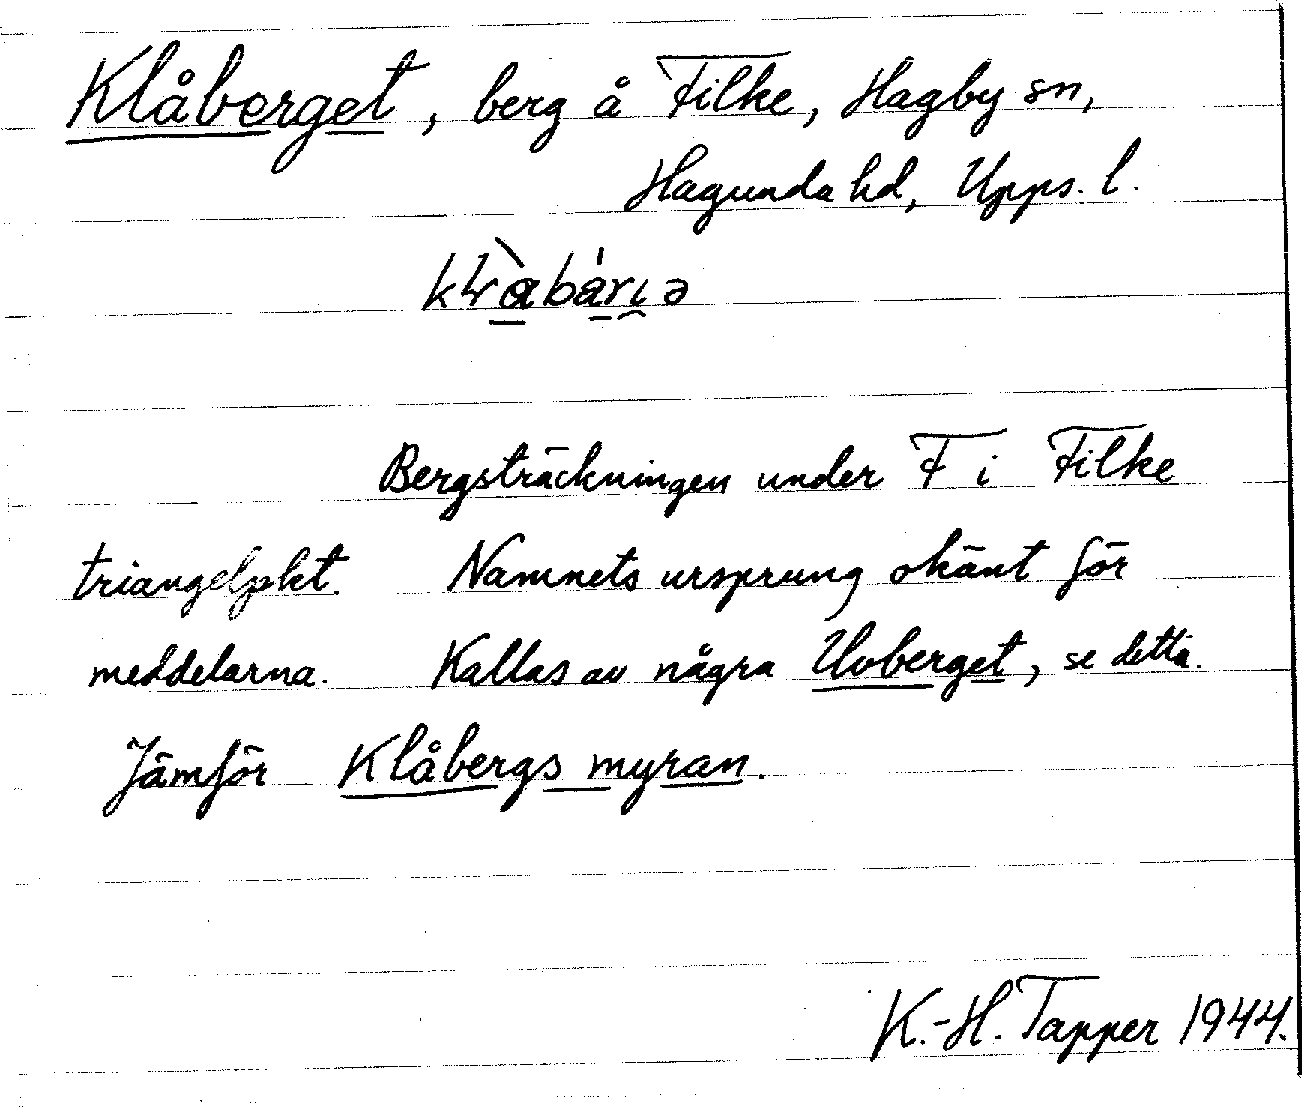 Klåberget, berg å Filke, Hagby sn,
Hagunda hd, Upps. l.
Bergsträckningen under F i Filke
triangelpkt. Namnets ursprung okänt för
meddelarna. Kallas av några Uvberget, se detta.
Jämför Klåbergsmyran.
K.-H. Tapper 1944.